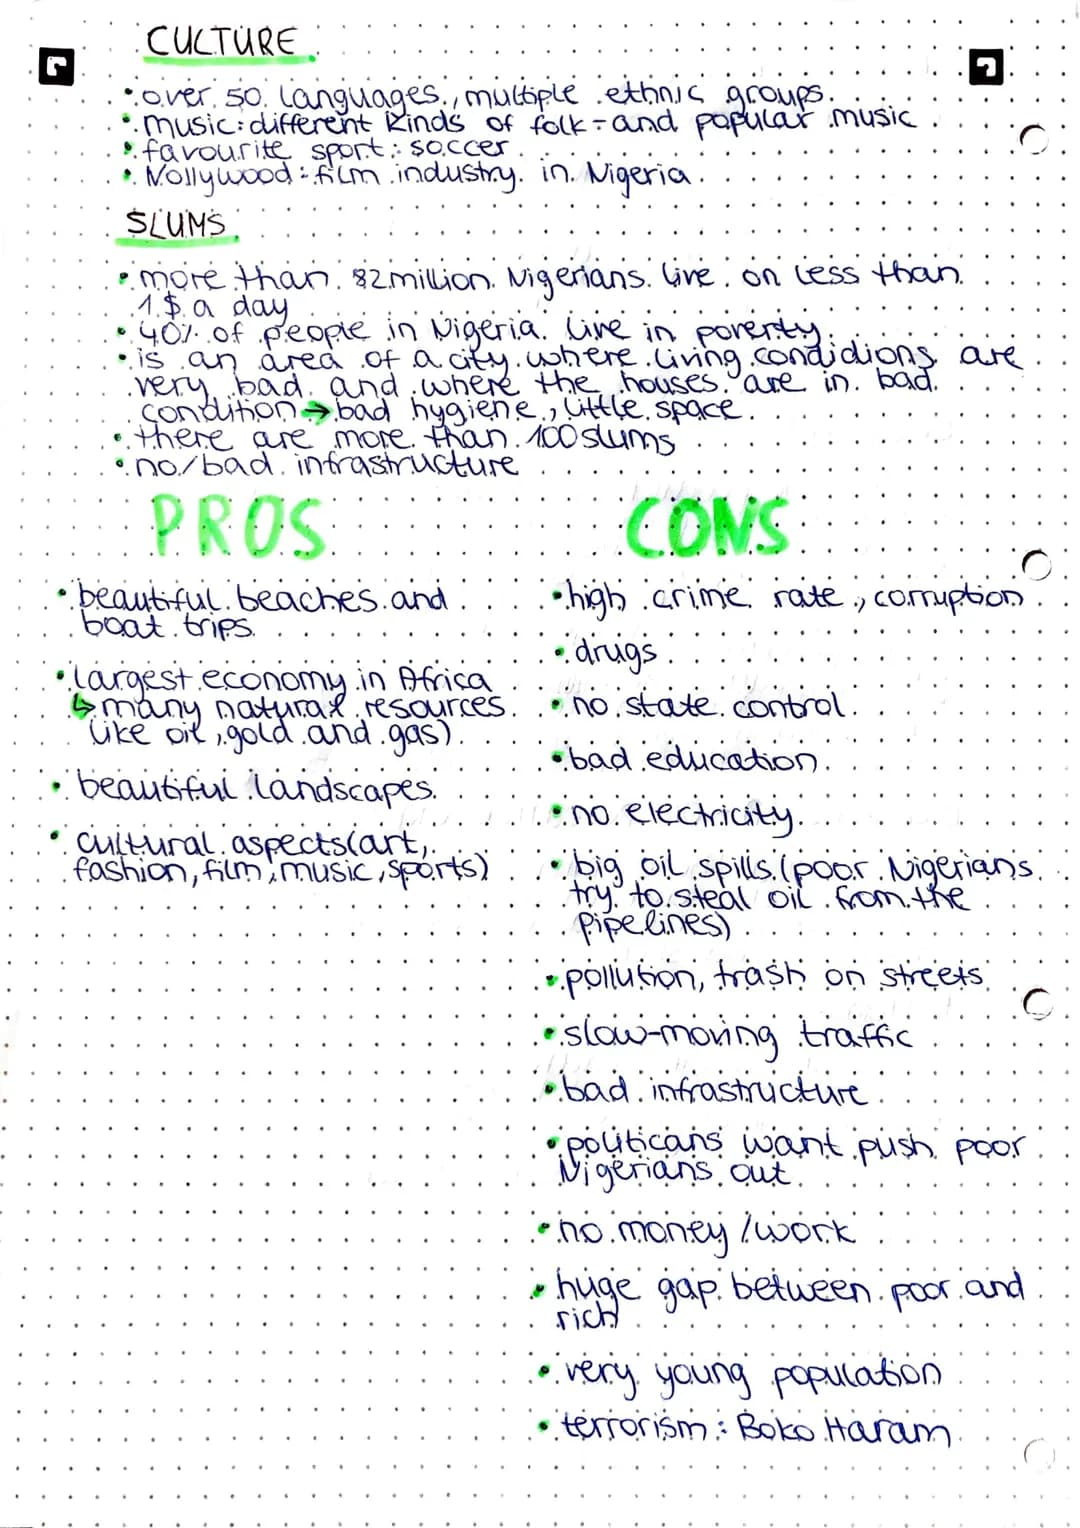 CULTURE
• over 50 languages, multiple ethnic groups
• music: different kinds of folk- and popular music
• favourite sport: soccer
• Nollywood: film industry in Nigeria
SLUMS
• more than 82 million Nigerians live on less than
1$ a day
• 40% of people in Nigeria live in poverty
• is an area of a city where living condidions are
very bad and where the houses are in bad
condition → bad hygiene, little space
• there are more than 100 slums
• no/bad infrastructure
PROS
• beautiful beaches and
boat trips
• largest economy in Africa
↳ many natural resources
like oil, gold and gas)
• beautiful landscapes
• cultural aspects (art,
fashion, film, music, sports)
CONS
• high crime rate, corruption
• drugs
• no state control
• bad education
• no electricity
• big oil spills (poor Nigerians
try to steal oil from the
pipelines)
• pollution, trash on streets
• slow-moving traffic
• bad infrastructure
• politicans want push poor
Nigerians out
• no money / work
• huge gap between poor and
rich
• very young population
• terrorism: Boko Haram